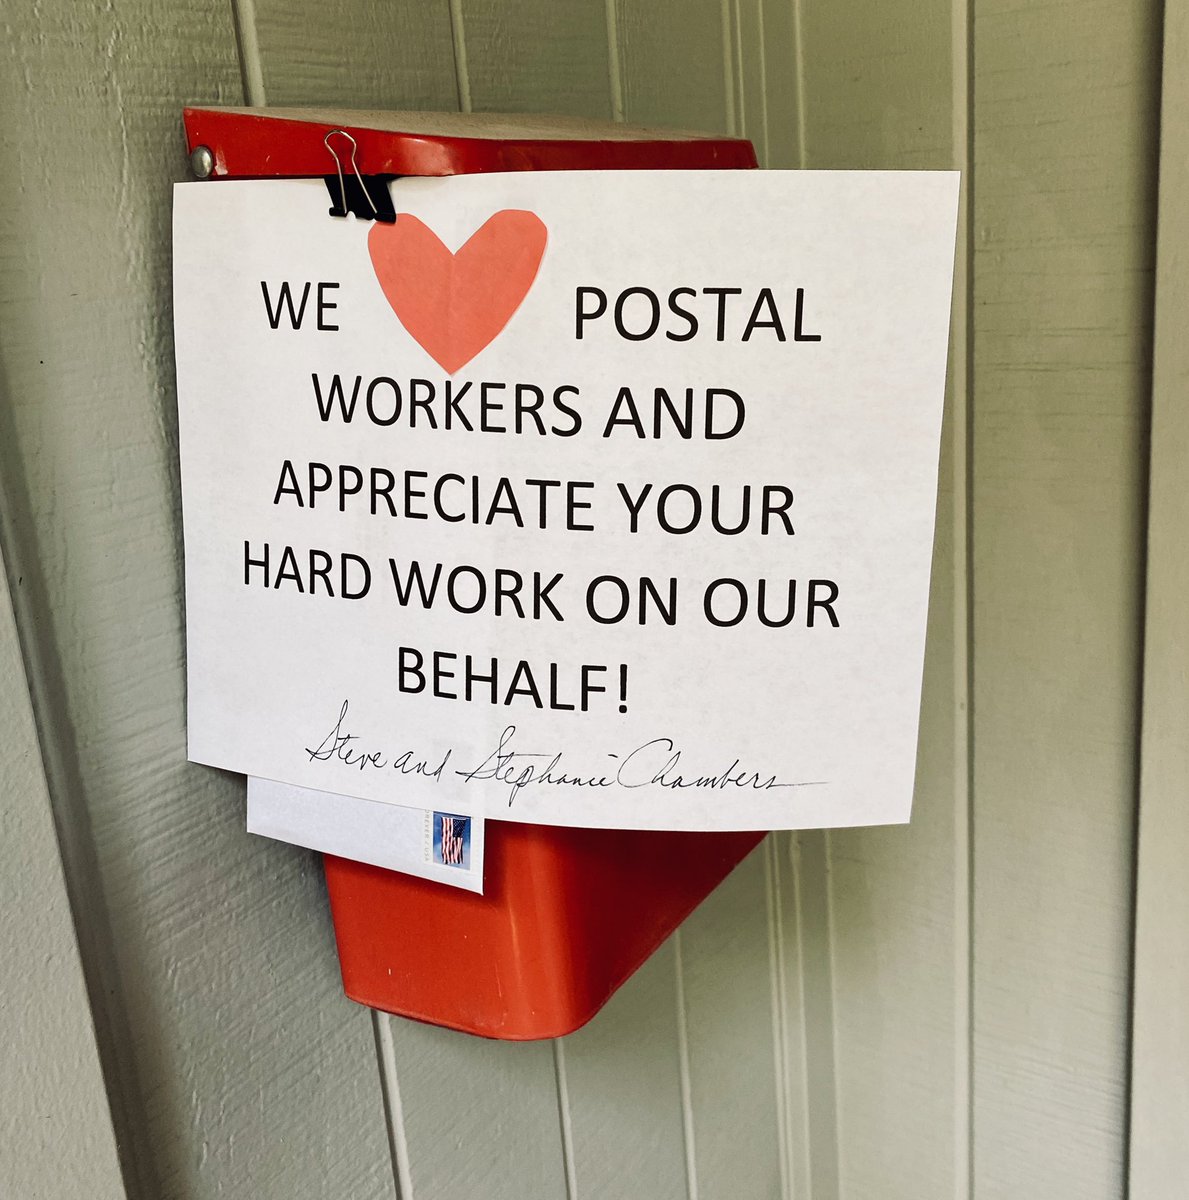 WE POSTAL
WORKERS AND
APPRECIATE YOUR
HARD WORK ON OUR
BEHALF!
Steve and Stephanie Chambers
FOREVER / USA